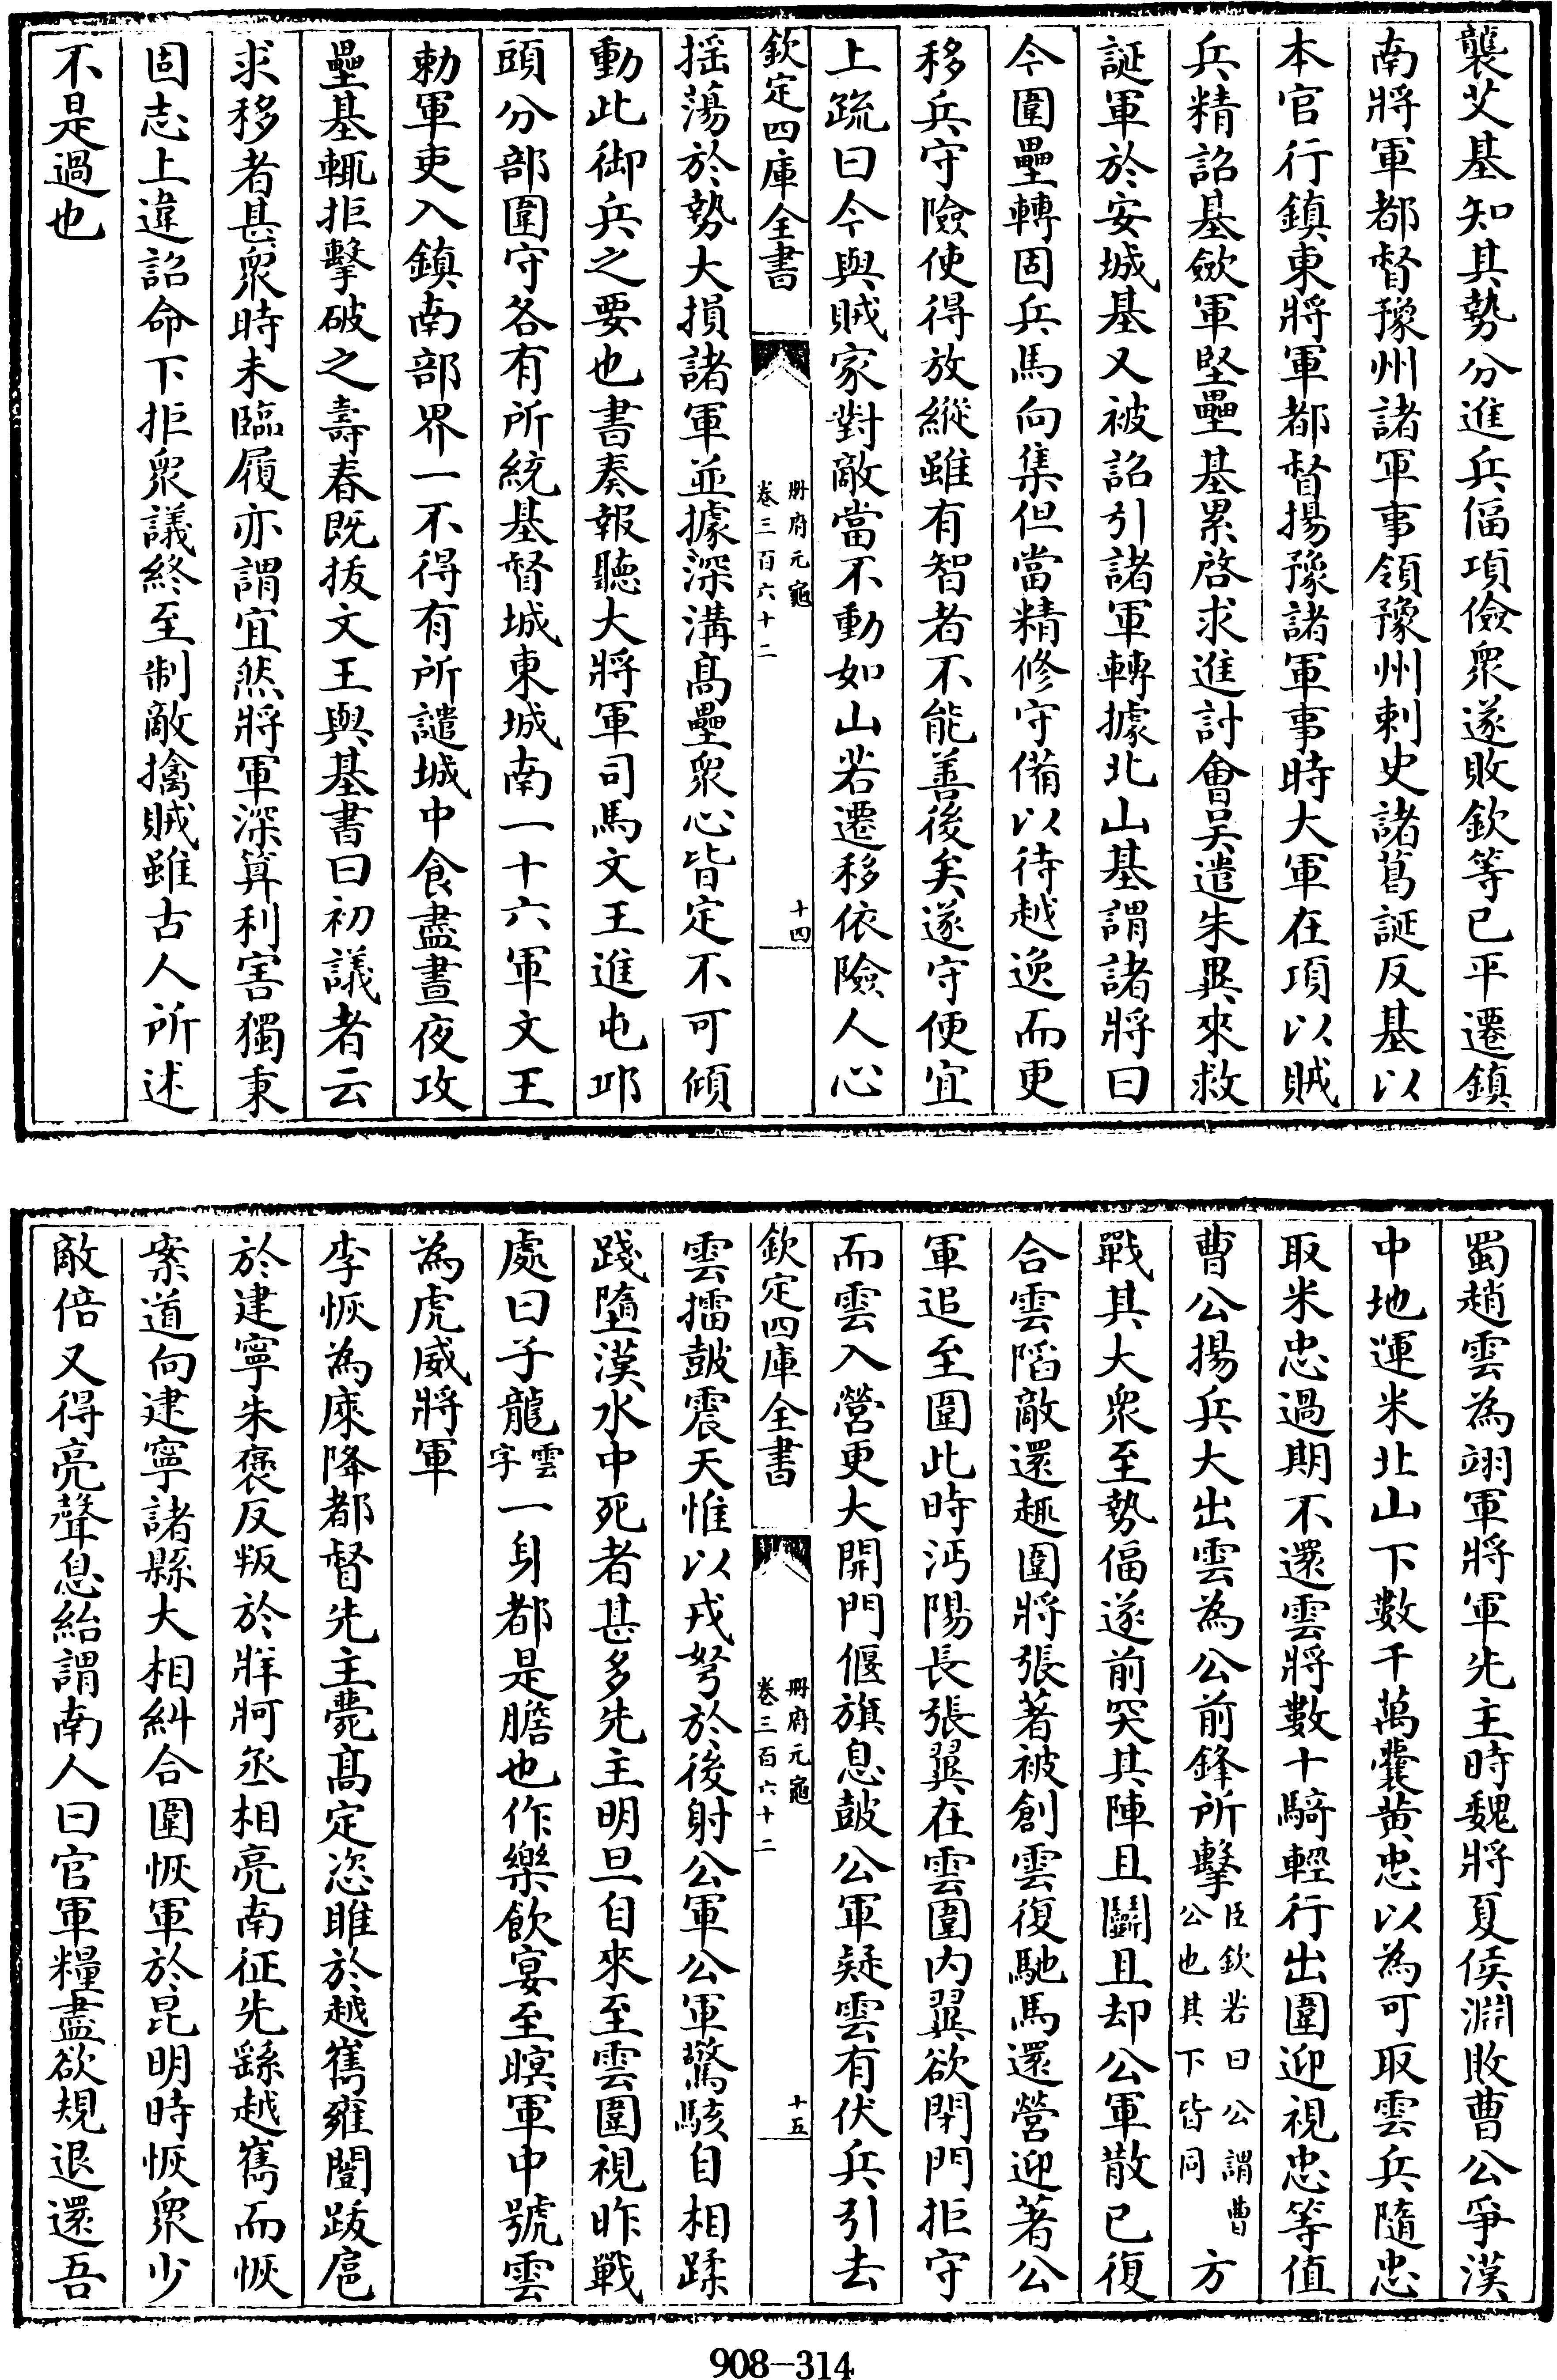 襲艾基知其勢分進兵偪項儉衆遂敗欽等已平遷鎮
南將軍都督豫州諸軍事領豫州刺史諸葛誕反基以
本官行鎮東將軍都督揚豫諸軍事時大軍在項以賊
兵精詔基歛軍堅壘基累啓求進討會吴遣朱異來救
誕軍於安城基又被詔引諸軍轉據北山基謂諸將曰
今圍壘轉固兵馬向集但當精修守備以待越逸而更
移兵守險使得放縱雖有智者不能善後矣遂守便宜
上疏曰今與賊家對敵當不動如山若遷移依險人心
欽定四庫全書
册府元龜
卷三百六十二
十四
揺蕩於勢大損諸軍並據深溝髙壘衆心皆定不可傾
動此御兵之要也書奏報聽大將軍司馬文王進屯邱
頭分部圍守各有所統基督城東城南一十六軍文王
勅軍吏入鎮南部界一不得有所譴城中食盡晝夜攻
壘基輒拒擊破之壽春既抜文王與基書曰初議者云
求移者甚衆時未臨履亦謂宜然將軍深算利害獨秉
固志上違詔命下拒衆議終至制敵擒賊雖古人所述
不是過也
蜀趙雲為翊軍將軍先主時魏將夏侯淵敗曹公爭漢
中地運米北山下數千萬囊黄忠以為可取雲兵隨忠
取米忠過期不還雲將數十騎輕行出圍迎視忠等值
曹公揚兵大出雲為公前鋒所擊臣欽若曰公謂曹公也其下皆同方
戰其大衆至勢偪遂前突其陣且鬭且却公軍散已復
合雲陷敵還趣圍將張著被創雲復馳馬還營迎著公
軍追至圍此時沔陽長張翼在雲圍内翼欲閉門拒守
而雲入營更大開門偃旗息鼓公軍疑雲有伏兵引去
欽定四庫全書
册府元龜
卷三百六十二
十五
雲擂鼓震天惟以戎弩於後射公軍公軍驚駭自相蹂
踐墮漢水中死者甚多先主明旦自來至雲圍視昨戰
處曰子龍雲字一身都是膽也作樂飲宴至暝軍中號雲
為虎威將軍
李恢為庲降都督先主薨髙定恣睢於越嶲雍闓跋扈
於建寧朱褒反叛於牂牁丞相亮南征先繇越嶲而恢
案道向建寧諸縣大相糾合圍恢軍於昆明時恢衆少
敵倍又得亮聲息紿謂南人曰官軍糧盡欲規退還吾
908-314